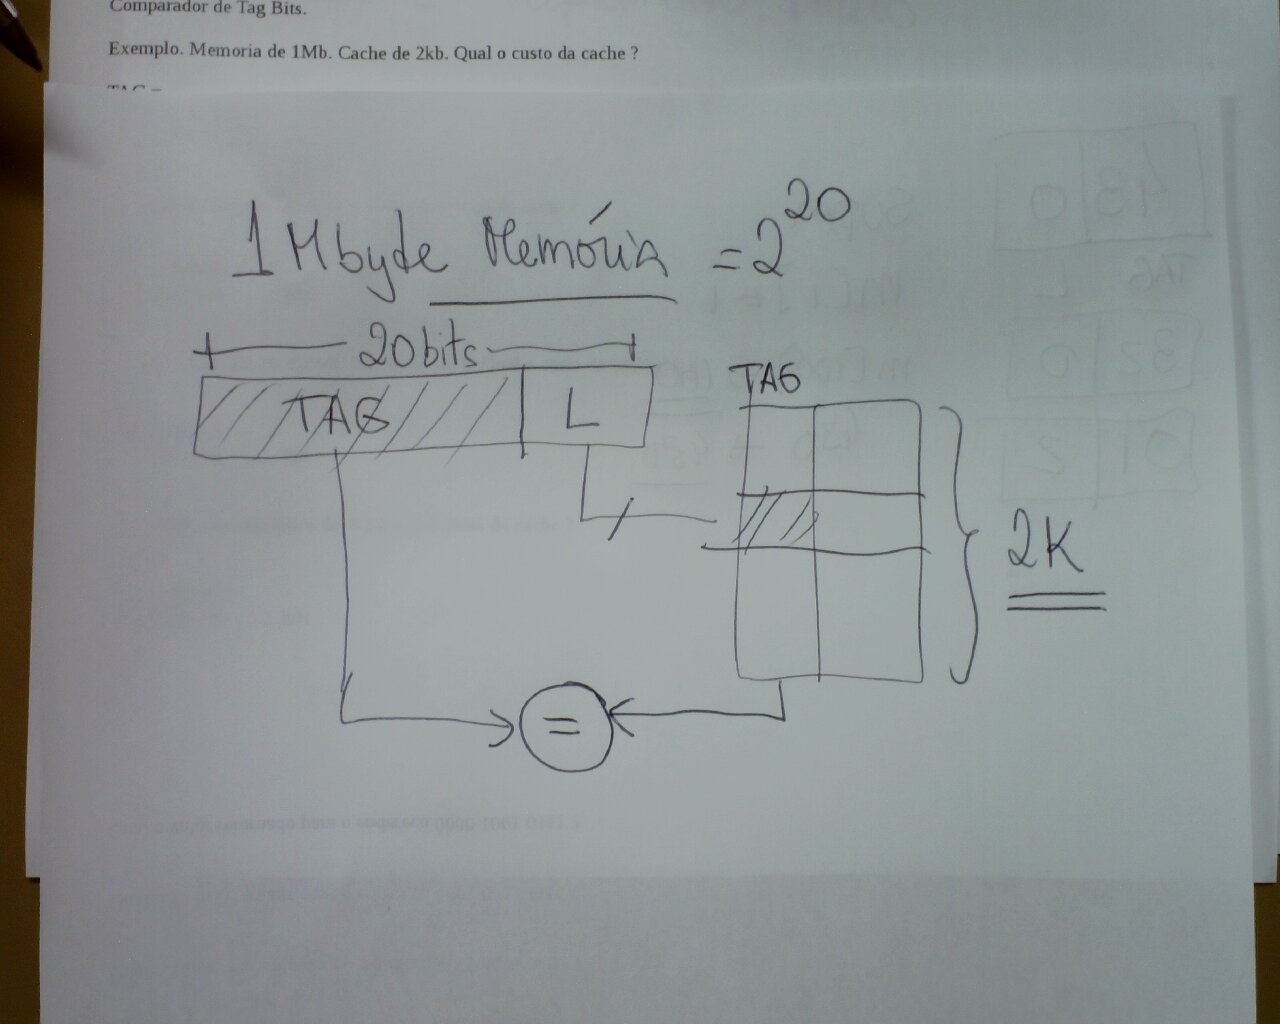 Comparador de Tag Bits.
Exemplo. Memoria de 1Mb. Cache de 2kb. Qual o custo da cache ?
1 Mbyte Memória = 2^20
20 bits
TAG L
TAG
2K
=